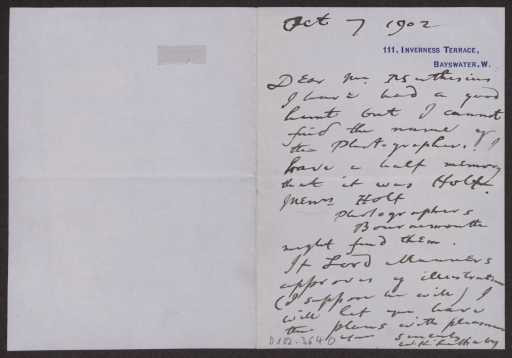 Oct 7 1902
111, Inverness Terrace,
Bayswater, W.
Dear Mr. Muthesius
I have had a good
hunt but I cannot
find the name of
the Photographer. I
have a half memory
that it was Holt.
Messrs Holt
Photographers
Bournemouth
might find them.
If Lord Manners
approves of illustration
(I suppose he will) I
will let you have
the plans with pleasure
Yours sincerely
W R Lethaby